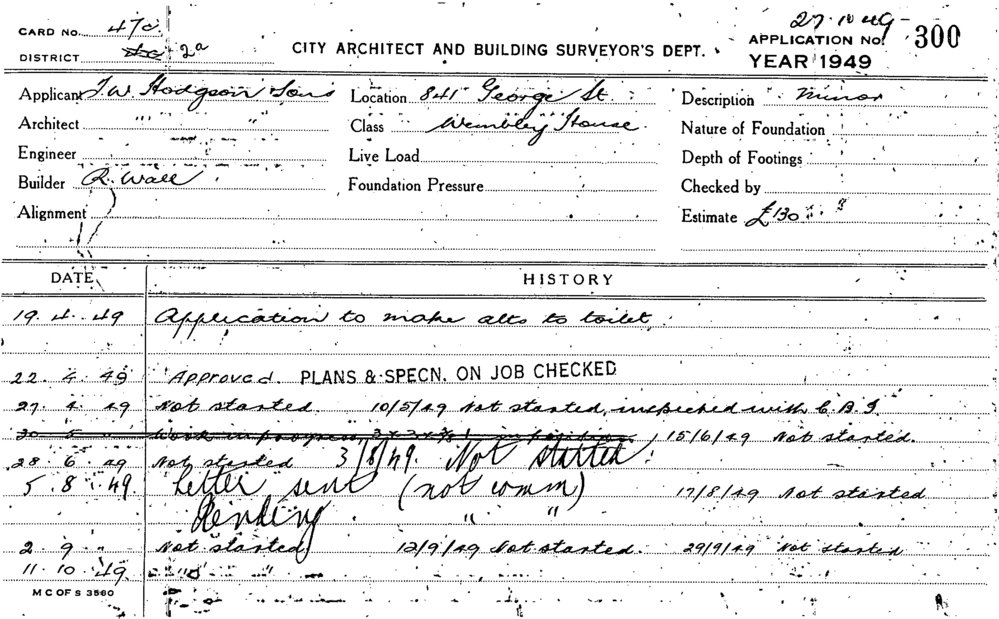 27·10·49
CARD NO. 47c.
CITY ARCHITECT AND BUILDING SURVEYOR'S DEPT.
APPLICATION No. 300
DISTRICT 2a
YEAR 1949
Applicant T.W. Hodgson & Sons
Location 841 George St.
Description Minor
Architect " "
Class Wembley House.
Nature of Foundation
Engineer
Live Load
Depth of Footings
Builder R. Wall
Foundation Pressure
Checked by
Alignment
Estimate £130
DATE HISTORY
19. 4. 49 Application to make alts to toilet.
22. 4. 49 Approved. PLANS & SPECN. ON JOB CHECKED
27. 4. 49 Not started. 10/5/49 Not started, inspected with C.B.I.
20 5 " Work in progress 15/6/49 Not started.
28. 6. 49 Not started 3/8/49. Not started.
5. 8. 49. Letter sent (not comm) 17/8/49 Not started
Pending " "
2. 9 " Not started 12/9/49 Not started. 29/9/49 Not started
11. 10. 49. " "
M C OF S 3560